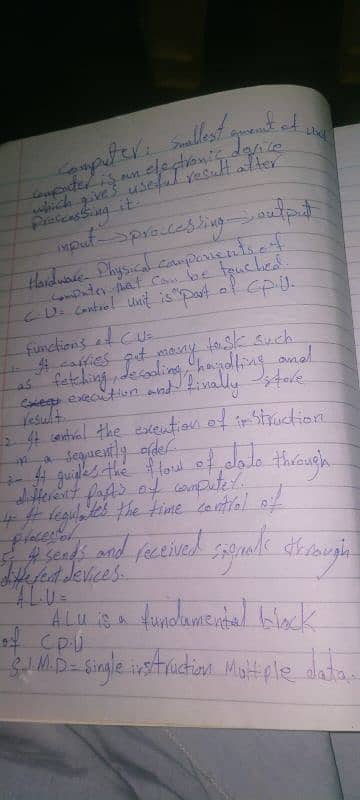 Computer: Smallest amount of
Computer is an electronic device
which gives useful result after
processing it.
input → processing → output
Hardware - Physical components of
computer that can be touched.
CU = Control unit is part of C.P.U.
Functions of CU =
1. It carries out many task such
as fetching, decoding, handling and
execution and finally store
result.
2. It control the exeution of instruction
in a sequently order.
3- It guides the flow of data through
different Parts of computer.
4. It regulates the time control of
processor
5. It sends and received signals through
different devices.
A.L.U =
ALU is a fundamental block
of C.P.U
S.I.M.D = Single instruction Multiple data.